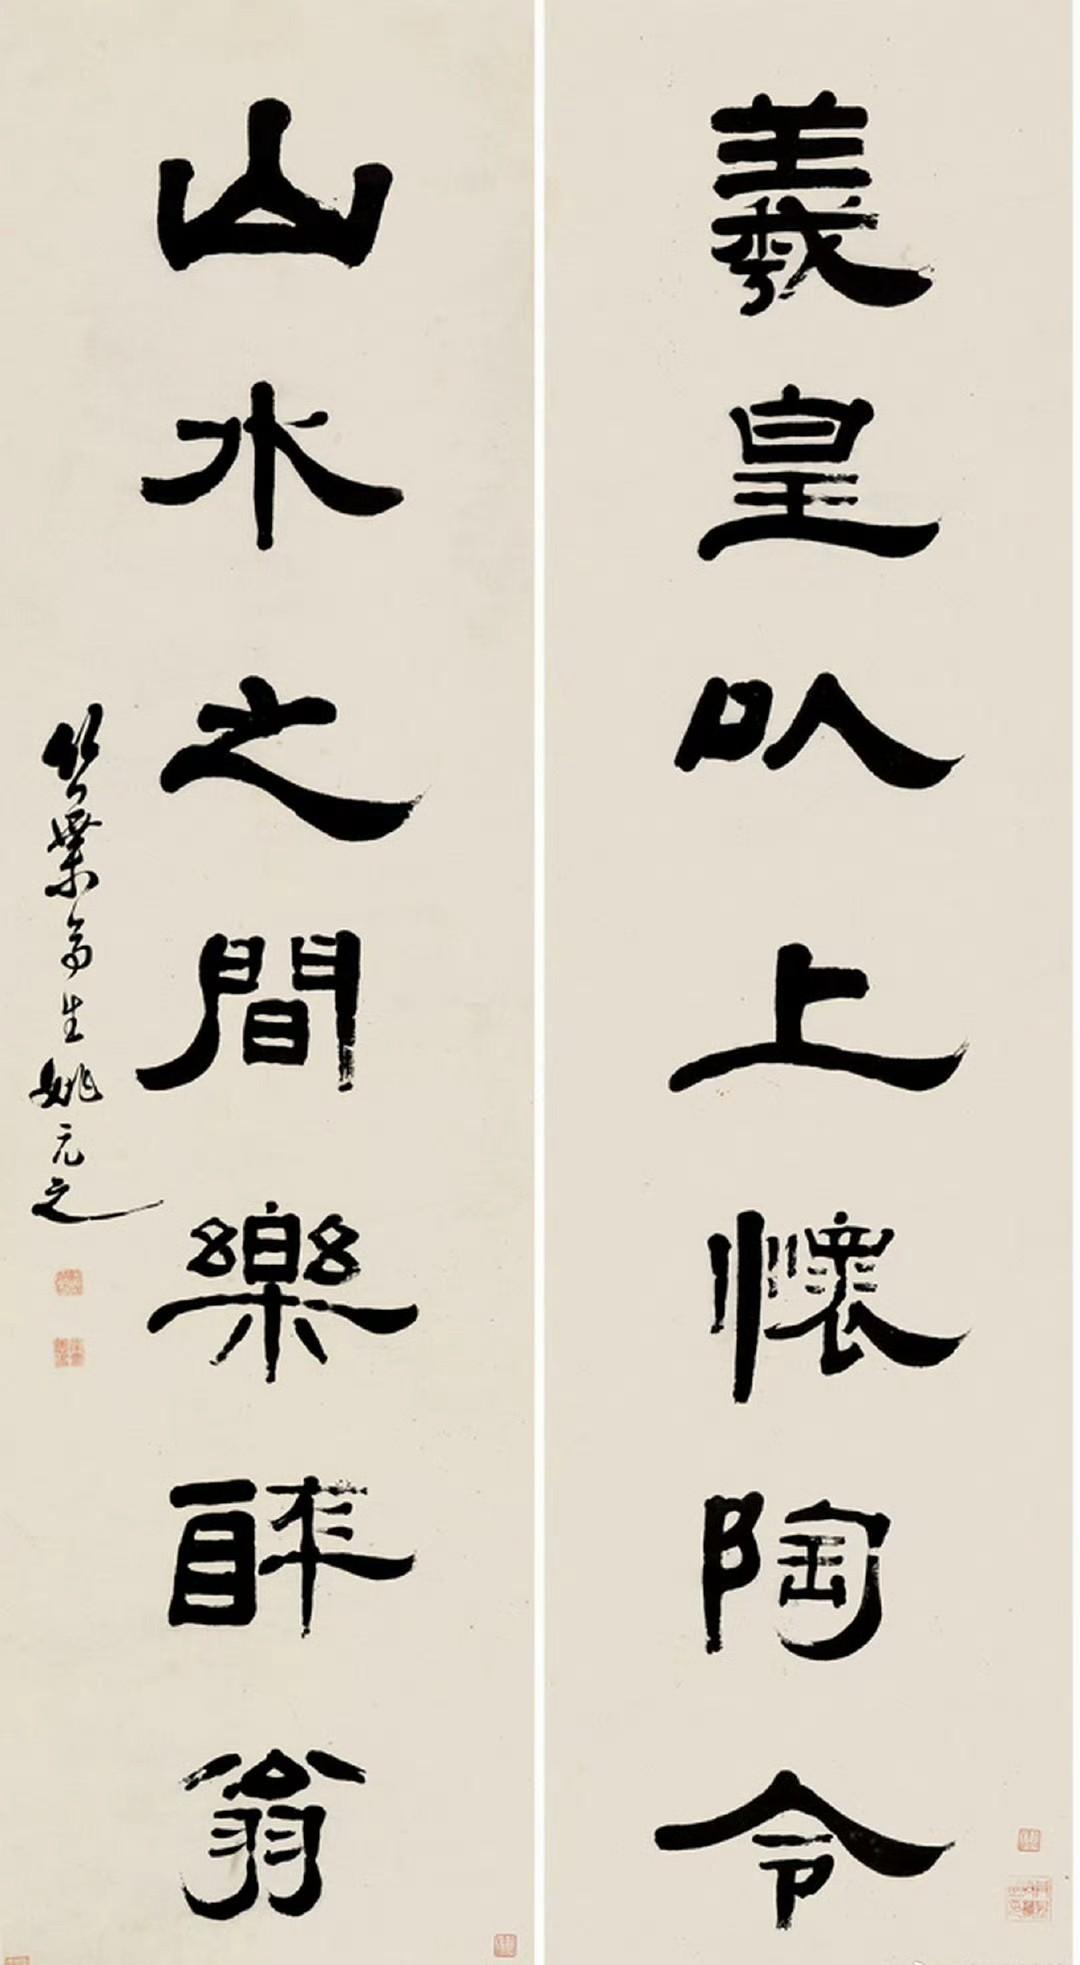 羲皇以上懷陶令
山水之間樂醉翁
竹葉亭生姚元之